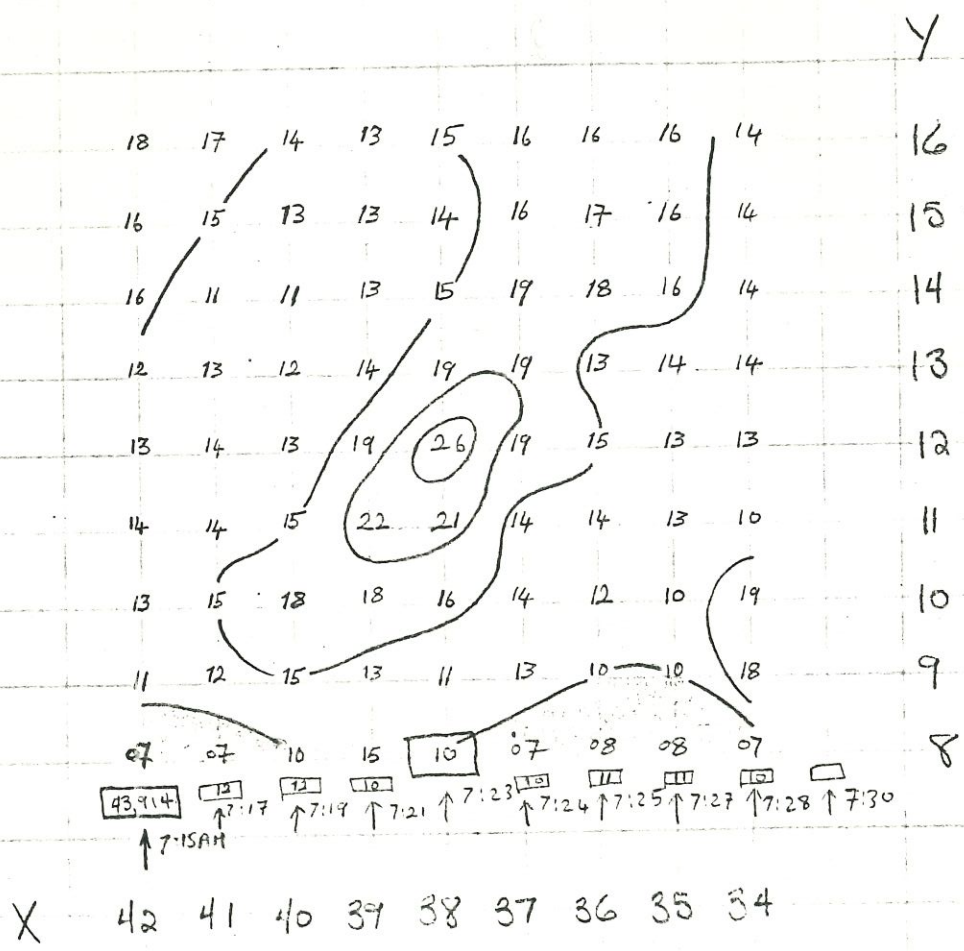 Y
18 17 14 13 15 16 16 16 14 16
16 15 13 13 14 16 17 16 14 15
16 11 11 13 15 19 18 16 14 14
12 13 12 14 19 19 13 14 14 13
13 14 13 19 26 19 15 13 13 12
14 14 15 22 21 14 14 13 10 11
13 15 18 18 16 14 12 10 19 10
11 12 15 13 11 13 10 10 18 9
07 07 10 15 10 07 08 08 07 8
43,914 12 12 10 10 11 11 10
7:15AM 7:17 7:19 7:21 7:23 7:24 7:25 7:27 7:28 7:30
X 42 41 40 39 38 37 36 35 34